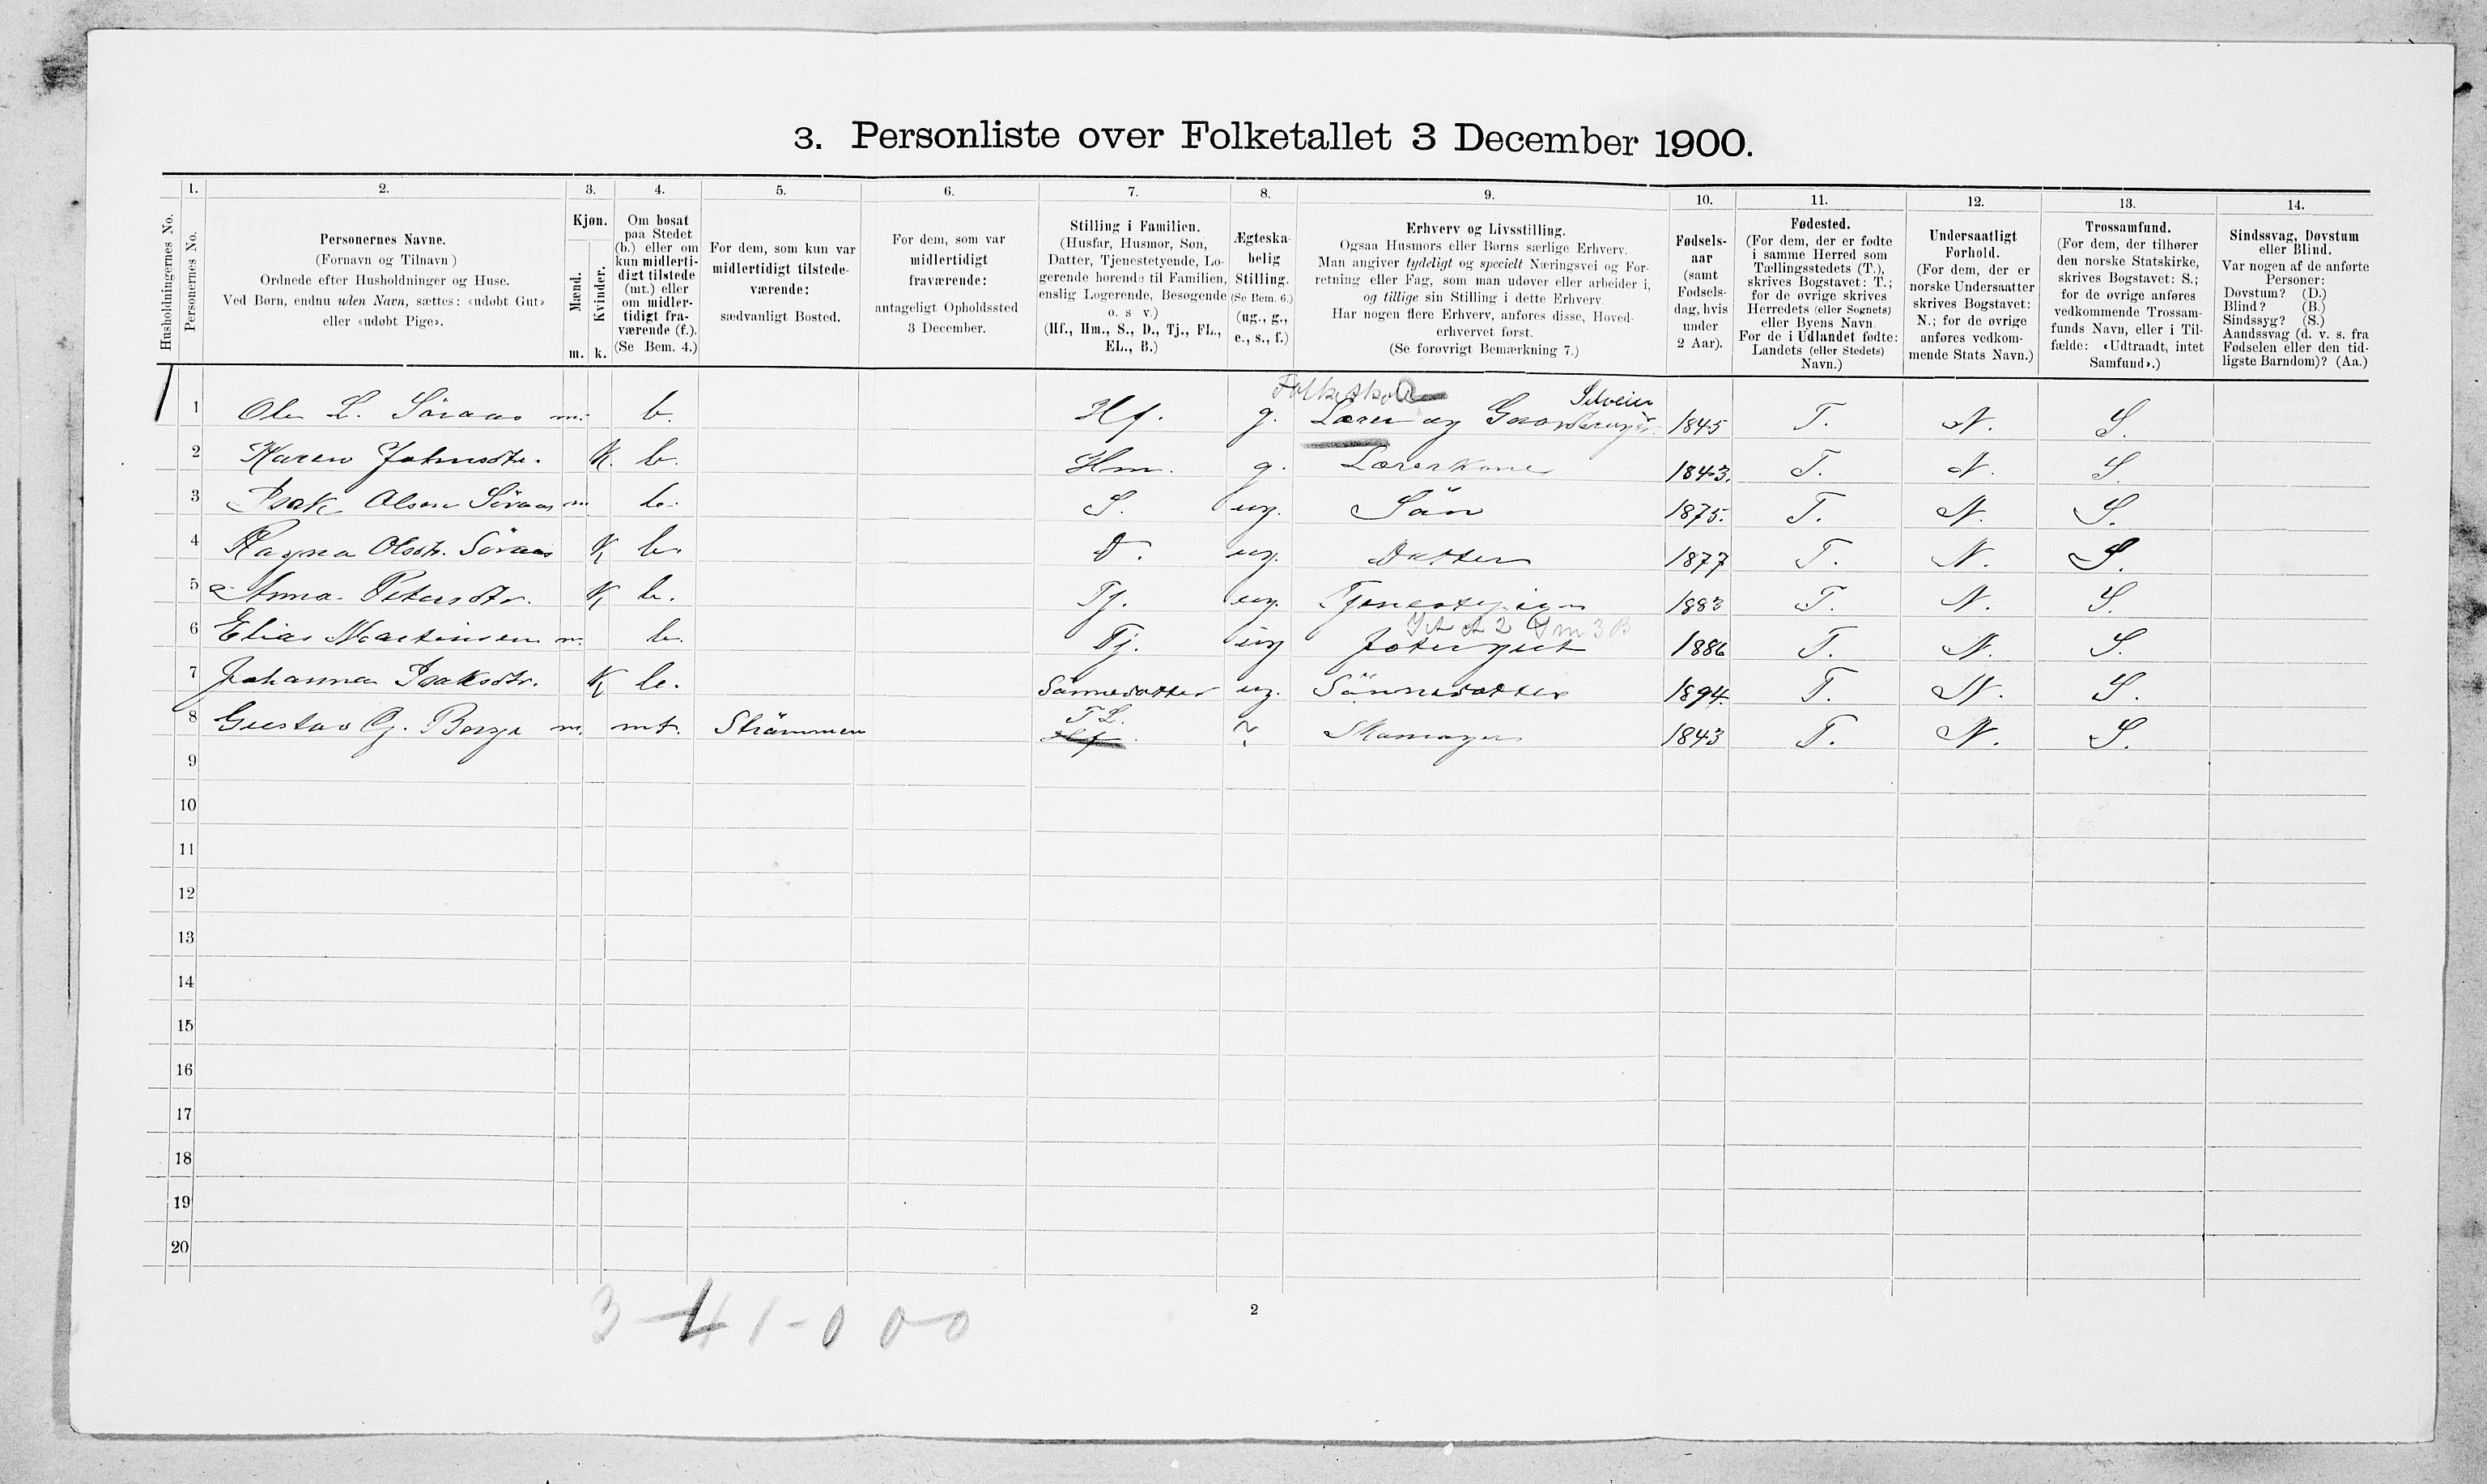 3. Personliste over Folketallet 3 December 1900.
Husholdningernes No.
1.
Personernes No.
2.
Personernes Navne.
(Fornavn og Tilnavn)
Ordnede efter Husholdninger og Huse.
Ved Børn, endnu uden Navn, sættes: «udøbt Gut»
eller «udøbt Pige».
3.
Kjøn.
Mænd.
Kvinder.
m. k.
4.
Om bosat
paa Stedet
(b.) eller om
kun midlerti-
digt tilstede
(mt.) eller
om midler-
tidigt fra-
værende (f.).
(Se Bem. 4.)
5.
For dem, som kun var
midlertidigt tilstede-
værende:
sædvanligt Bosted.
6.
For dem, som var
midlertidigt
fraværende:
antageligt Opholdssted
3 December.
7.
Stilling i Familien.
(Husfar, Husmor, Søn,
Datter, Tjenestetyende, Lo-
gerende hørende til Familien,
enslig Logerende, Besøgende
o. s v.)
(Hf., Hm., S., D., Tj., FL.,
EL., B.)
8.
Ægteska-
belig
Stilling.
(Se Bem. 6.)
(ug., g.,
e., s., f.)
9.
Erhverv og Livsstilling.
Ogsaa Husmors eller Børns særlige Erhverv.
Man angiver tydeligt og specielt Næringsvei og For-
retning eller Fag, som man udøver eller arbeider i,
og tillige sin Stilling i dette Erhverv.
Har nogen flere Erhverv, anføres disse, Hoved-
erhvervet først.
(Se forøvrigt Bemærkning 7.)
10.
Fødsels-
aar
(samt
Fødsels-
dag, hvis
under
2 Aar).
11.
Fødested.
(For dem, der er fødte
i samme Herred som
Tællingsstedets (T.),
skrives Bogstavet: T.;
for de øvrige skrives
Herredets (eller Sognets)
eller Byens Navn.
For de i Udlandet fødte:
Landets (eller Stedets)
Navn.)
12.
Undersaatligt
Forhold.
(For dem, der er
norske Undersaatter
skrives Bogstavet:
N.; for de øvrige
anføres vedkom-
mende Stats Navn.)
13.
Trossamfund.
(For dem, der tilhører
den norske Statskirke,
skrives Bogstavet: S.;
for de øvrige anføres
vedkommende Trossam-
funds Navn, eller i Til-
fælde: «Udtraadt, intet
Samfund».)
14.
Sindssvag, Døvstum
eller Blind.
Var nogen af de anførte
Personer:
Døvstum? (D.)
Blind? (B.)
Sindssyg? (S.)
Aandssvag (d. v. s. fra
Fødselen eller den tid-
ligste Barndom)? (Aa.)
Selveier
1 1 Ole L. Søraas m. b. Hf. g. Lærer og 1845 T. N. S.
2 Karen Johnsdtr. K. b. Hm. g. Lærerkone 1843. T. N. S.
3 Isak Olsen Søraas m. b. S. ug. Sön 1875. T. N. S.
4 Ragna Olsdtr. Søraas K b. D. ug. Datter 1877 T. N. S.
5 Anna Petersdtr. K b. Tj. ug. Tjenestepige 1883 T. N. S.
6 Elias Martinsen m. b. Tj. ug 1886 T. N. S.
7 Johanna Isaksdtr. K b. Sønnedatter ug. Sønnedatter 1894. T. N. S.
F L.
8 Gustav G. Berge m. mt. Strömmen Hf. ? Skomager 1843 T. N. S.
9
10
11
12
13
14
15
16
17
18
19
20
2